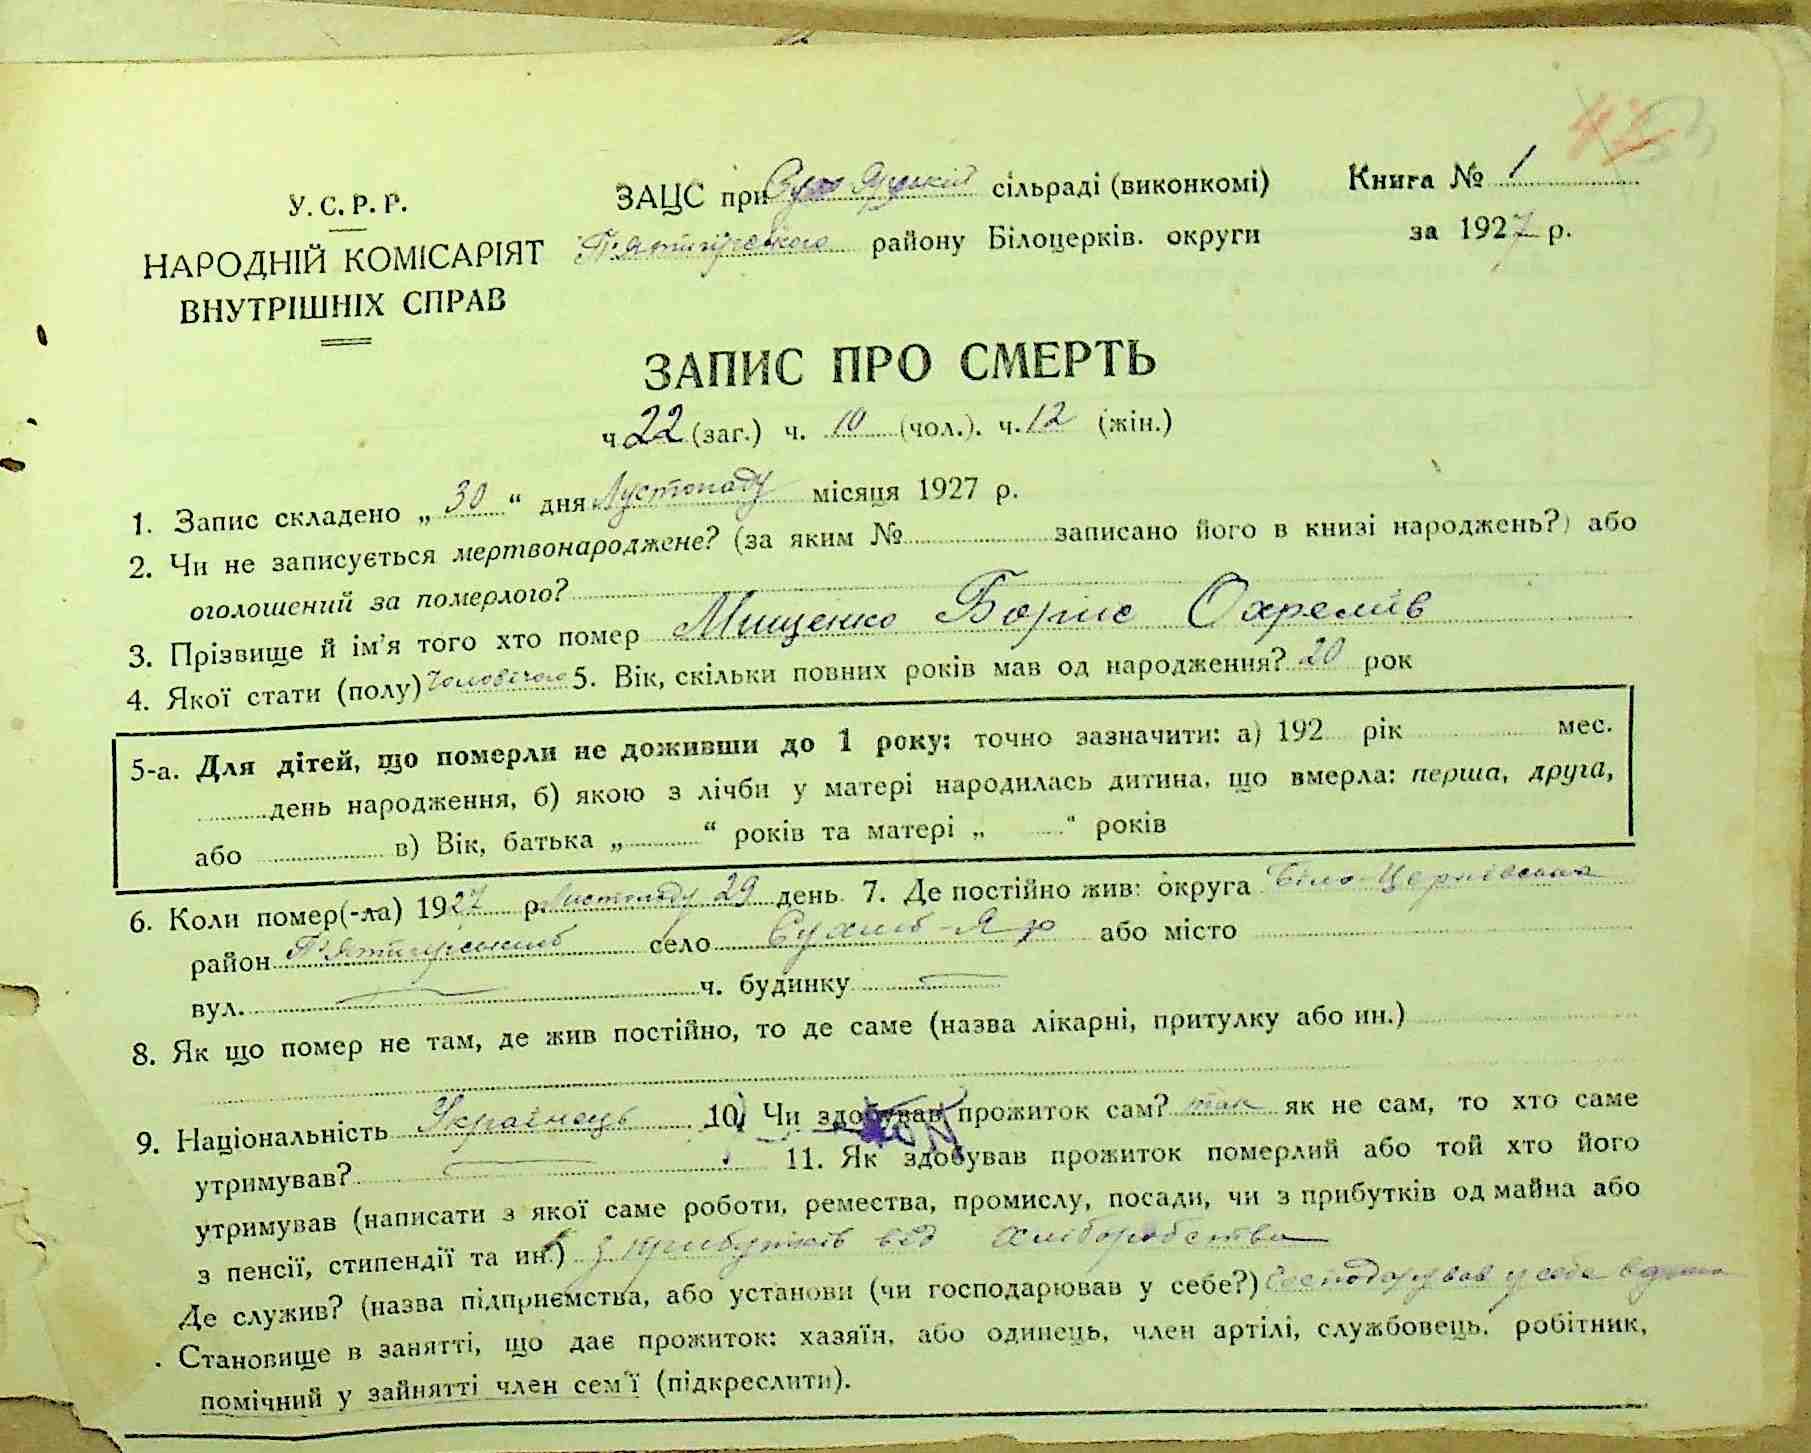 У.С.Р.Р.
НАРОДНІЙ КОМІСАРІЯТ
ВНУТРІШНІХ СПРАВ
ЗАЦС при сільраді (виконкомі)
Пятигірського району Білоцерків. округи
Книга № 1
за 1927 р.
ЗАПИС ПРО СМЕРТЬ
ч 22 (заг.) ч. 10 (чол.). ч. 12 (жін.)
1. Запис складено „ 30 “ дня Лустопаду місяця 1927 р.
2. Чи не записується мертвонароджене? (за яким № записано його в книзі народжень?) або
оголошений за померлого?
3. Прізвище й ім'я того хто помер Мищенко Борис Охремів
4. Якої стати (полу) Чоловічого 5. Вік, скільки повних років мав од народження? 20 рок
5-а. Для дітей, що померли не доживши до 1 року: точно зазначити: а) 192 рік мес.
день народження, б) якою з лічби у матері народилась дитина, що вмерла: перша, друга,
або в) Вік, батька „ “ років та матері „ “ років
6. Коли помер(-ла) 1927 р. Листопаду 29 день 7. Де постійно жив: округа Біло-Церківська
район Пятигірський село Сухий-Яр або місто
вул. ч. будинку
8. Як що помер не там, де жив постійно, то де саме (назва лікарні, притулку або ин.)
9. Національність Українець 10) Чи здобував прожиток сам? так як не сам, то хто саме
утримував? 11. Як здобував прожиток померлий або той хто його
утримував (написати з якої саме роботи, ремества, промислу, посади, чи з прибутків од майна або
з пенсії, стипендії та ин.) з прибутків від хліборобства
Де служив? (назва підприємства, або установи (чи господарював у себе?) Господорував у себе вдома
Становище в занятті, що дає прожиток: хазяїн, або одинець, член артілі, службовець, робітник,
помічний у зайнятті член сем'ї (підкреслити).